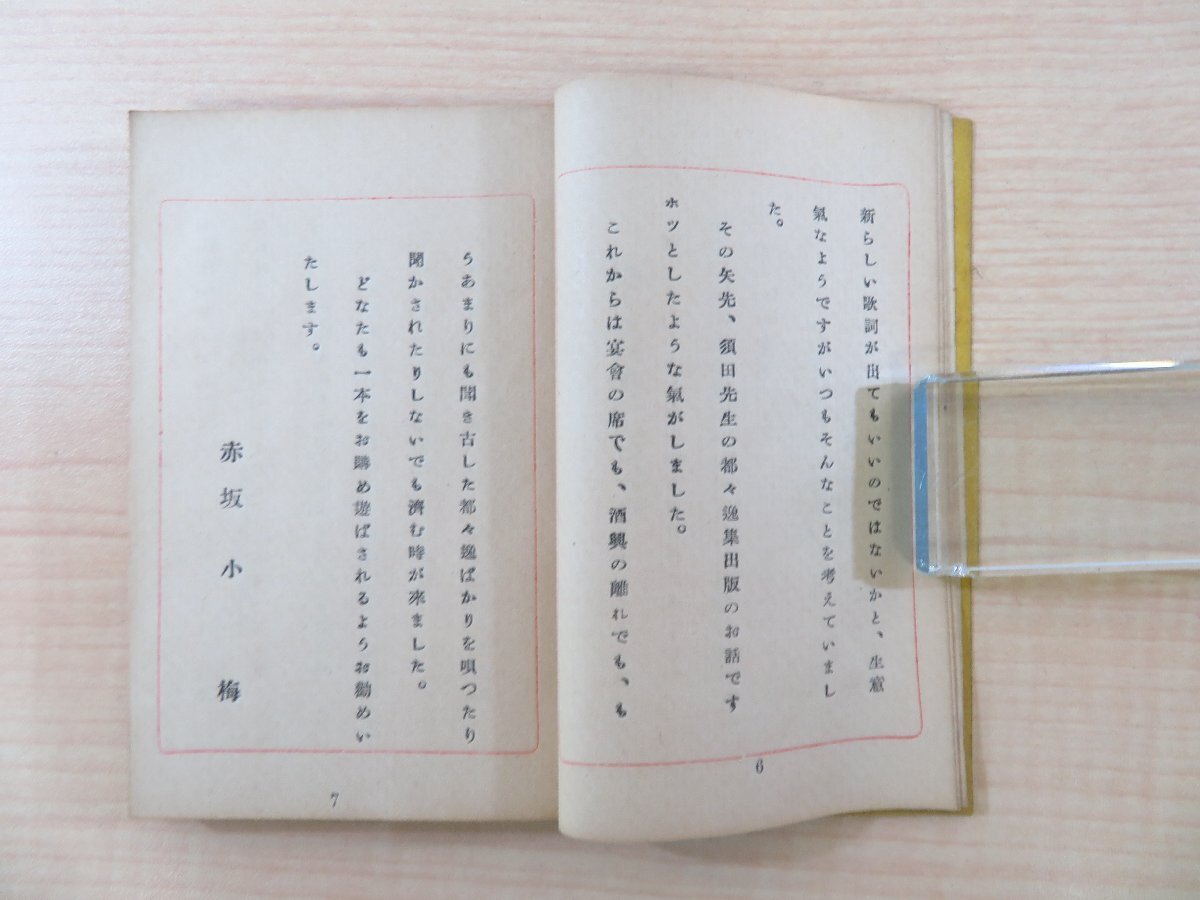 新らしい歌詞が出てもいいのではないかと、生意
氣なようですがいつもそんなことを考えていまし
た。
その矢先、須田先生の都々逸集出版のお話です
ホッとしたような氣がしました。
これからは宴會の席でも、酒興の離れでも、も
6
うあまりにも聞き古した都々逸ばかりを唄つたり
聞かされたりしないでも濟む時が來ました。
どなたも一本をお購め遊ばされるようお勸めい
たします。
赤坂小梅
7